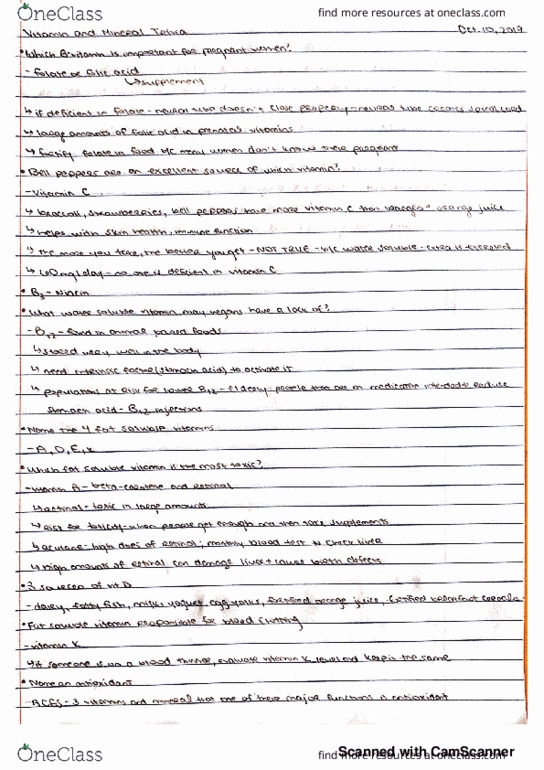 OneClass
find more resources at oneclass.com
Vitamin and Mineral Trivia Oct. 10, 2019
• Which B vitamin is important for pregnant women?
- folate or folic acid
↳ supplement
↳ if deficient in folate - neural tube doesn't close properly - neural tube
↳ large amounts of folic acid in prenatal vitamins
↳ fortify folate in food b/c many women don't know they're pregnant
• Bell peppers are an excellent source of which vitamin?
- Vitamin C
↳ broccoli, strawberries, bell peppers have more vitamin C than oranges + orange juice
↳ helps with skin health, immune function
↳ the more you take, the better you get - NOT TRUE - b/c water soluble - extra is excreted
↳ 60mg/day - no one is deficient in vitamin C
• B3 - Niacin
• What water soluble vitamin may vegans have a lack of?
- B12 - found in animal based foods
↳ stored very well in the body
↳ need intrinsic factor (stomach acid) to activate it
↳ populations at risk for lower B12 - elderly, people that are on medication intended to reduce
stomach acid - B12 injections
• Name the 4 fat soluble vitamins
- A, D, E, K
• Which fat soluble vitamin is the most toxic?
- vitamin A - beta-carotene and retinal
↳ retinal - toxic in large amounts
↳ risk for toxicity - when people get enough and then take supplements
↳ accutane - high does of retinal; monthly blood test to check liver
↳ high amounts of retinal can damage liver + cause birth defects
• 3 sources of vit D
- dairy, fatty fish, milk, yogurt, egg yolks, fortified orange juice, fortified breakfast cereals
• Fat soluble vitamin responsible for blood clotting
- vitamin K
↳ if someone is on a blood thinner, evaluate vitamin K level and keep it the same
• Name an antioxidant
- ACES - 3 vitamins and mineral that one of there major functions is antioxidant
OneClass
find more resources at oneclass.com
Scanned with CamScanner